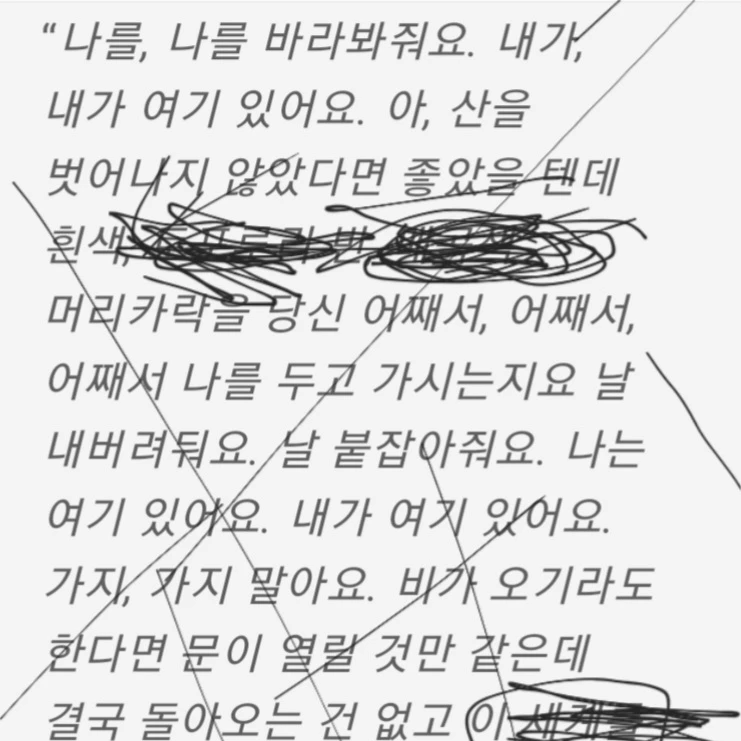 “나를, 나를 바라봐줘요. 내가,
내가 여기 있어요. 아, 산을
벗어나지 않았다면 좋았을 텐데
흰색,
머리카락을 당신 어째서, 어째서,
어째서 나를 두고 가시는지요 날
내버려둬요. 날 붙잡아줘요. 나는
여기 있어요. 내가 여기 있어요.
가지, 가지 말아요. 비가 오기라도
한다면 문이 열릴 것만 같은데
결국 돌아오는 건 없고 이 세계를